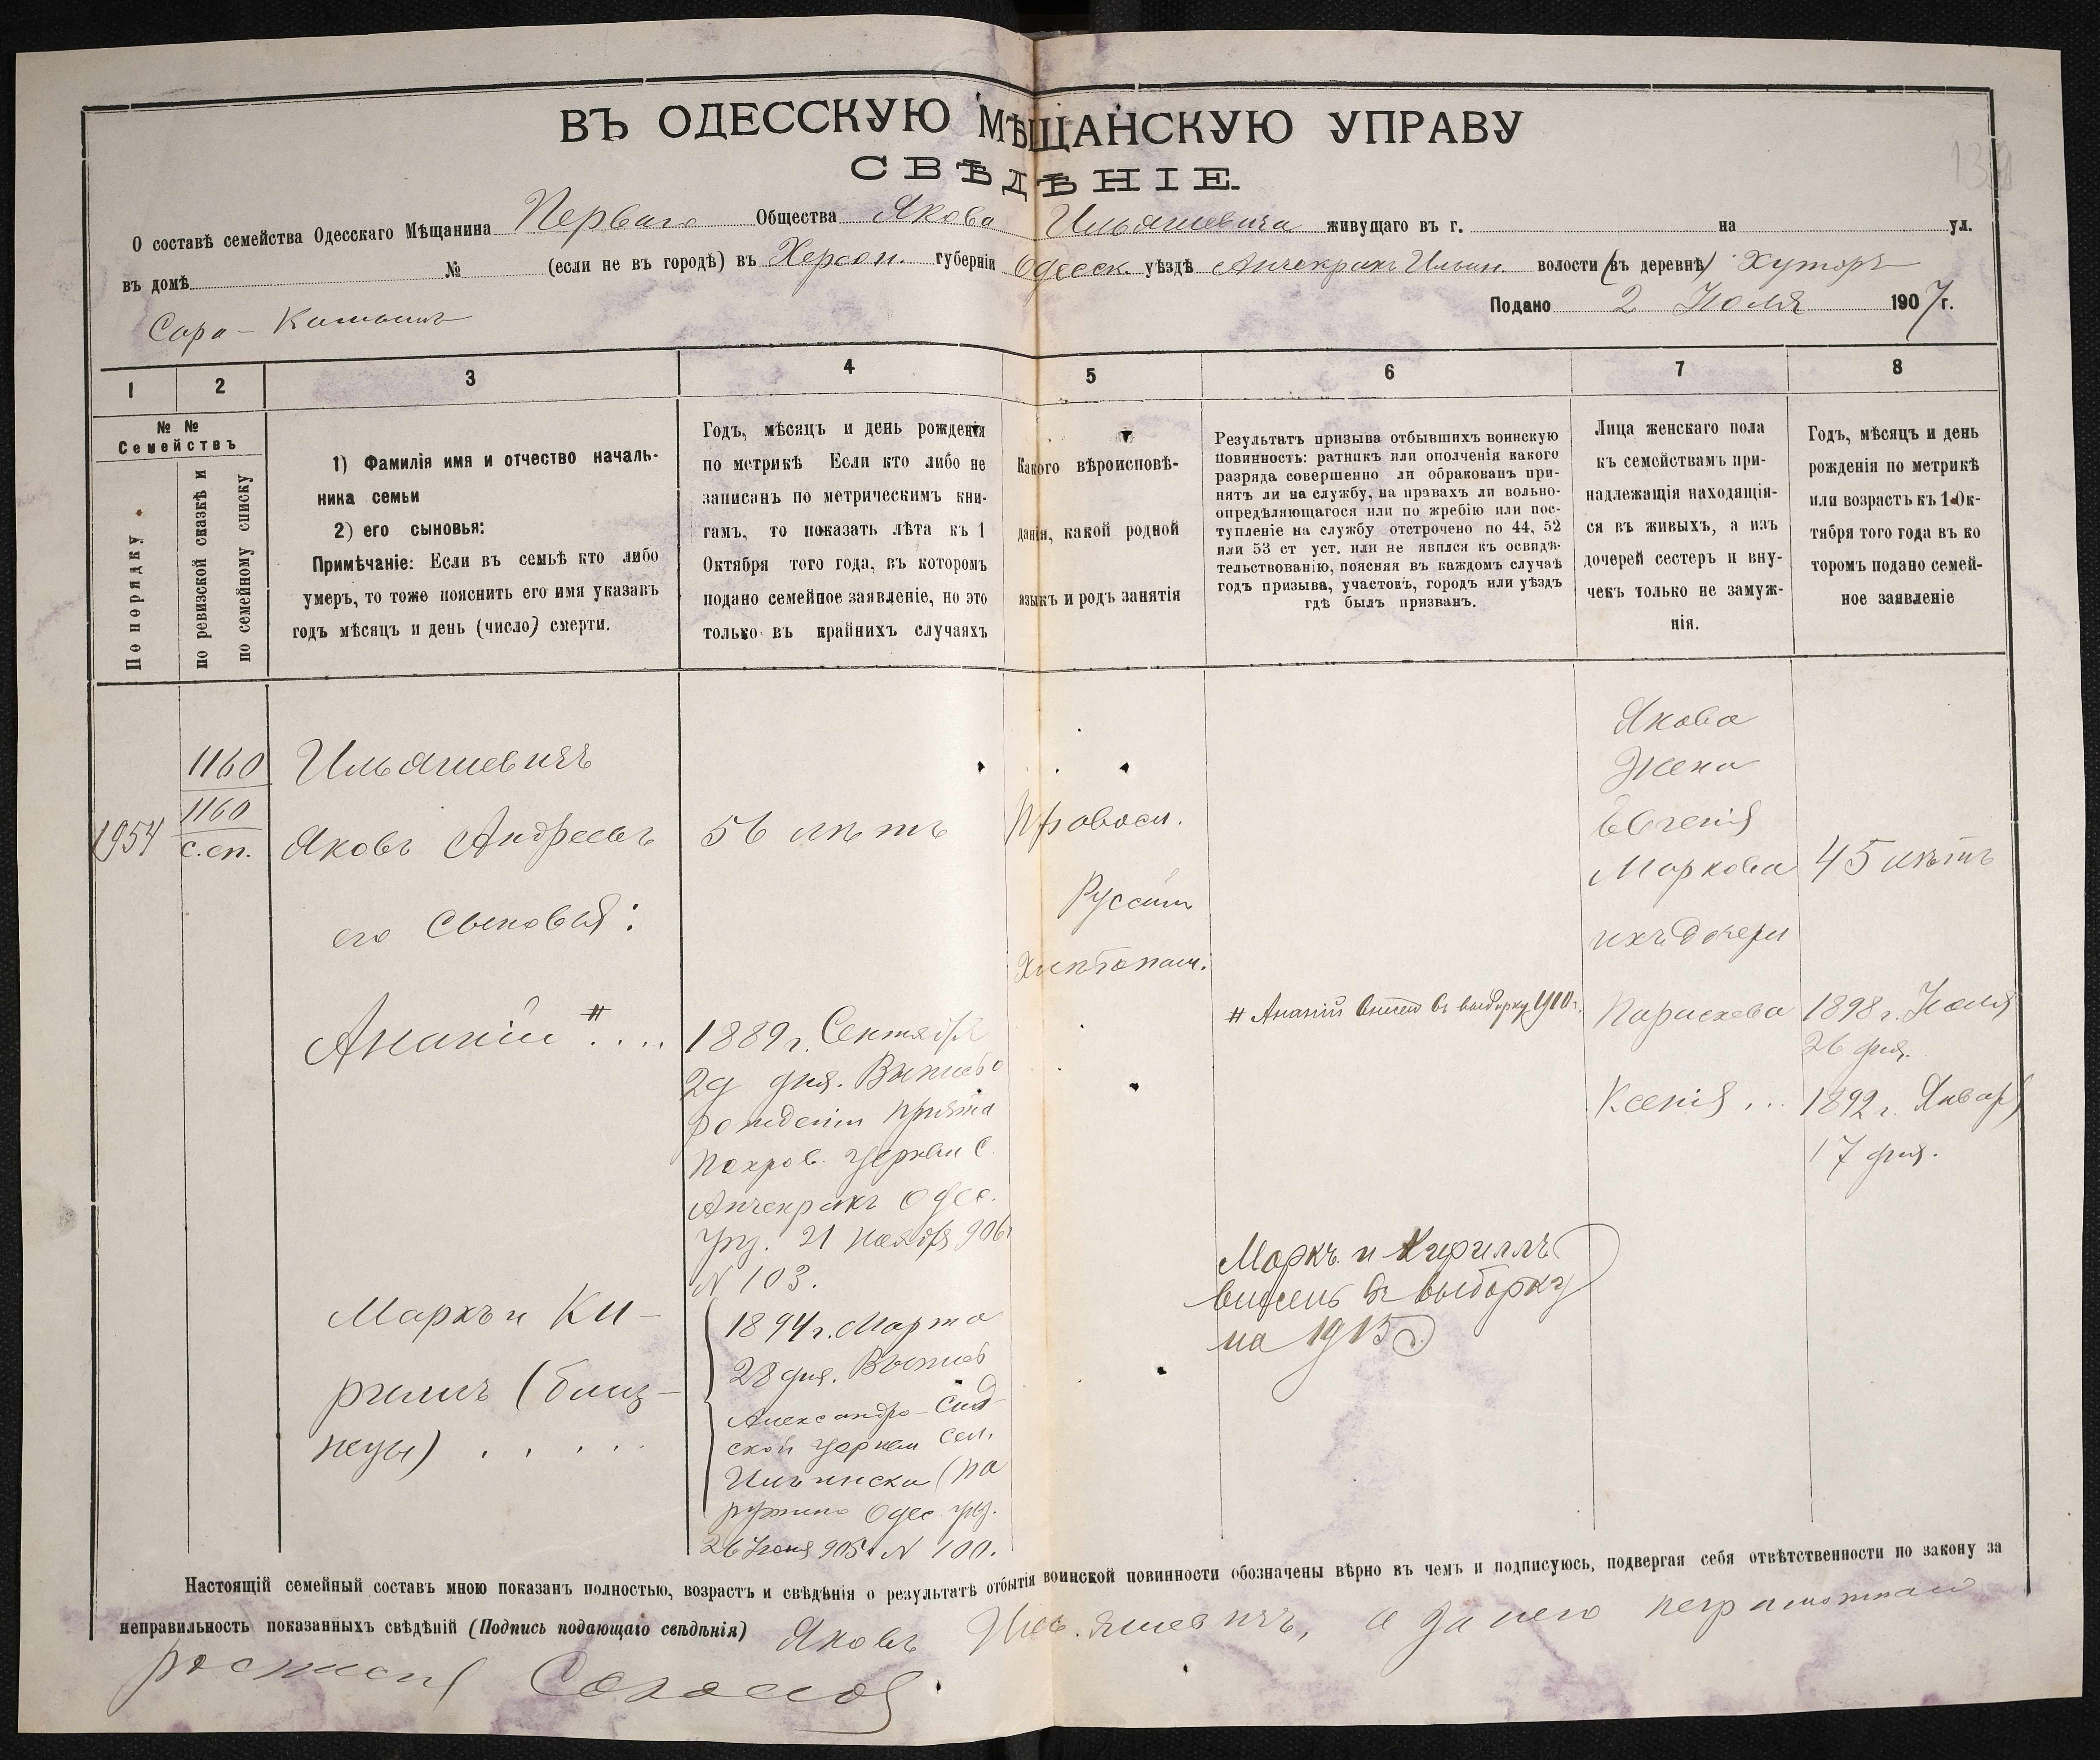 ВЪ ОДЕССКУЮ МѢЩАНСКУЮ УПРАВУ
СВѢДѢНІЕ.
О составѣ семейства Одесскаго Мѣщанина Перваго Общества Якова Ильяшевича живущаго въ г. на ул.
въ домѣ № (если не въ городѣ) въ Херсон. губерніи Одесск. уѣздѣ Анчекракъ Ильин. волости (въ деревнѣ) Хуторъ
Сара-
Подано 2 Іюля 1907 г.
1 2 3 4 5 6 7 8
№ №
Семействъ
По порядку
по ревизской сказкѣ и
по семейному списку
1) Фамилія имя и отчество началь-
ника семьи
2) его сыновья:
Примѣчаніе: Если въ семьѣ кто либо
умеръ, то тоже пояснить его имя указавъ
годъ мѣсяцъ и день (число) смерти.
Годъ, мѣсяцъ и день рожденія
по метрикѣ Если кто либо не
записанъ по метрическимъ кни-
гамъ, то показать лѣта къ 1
Октября того года, въ которомъ
подано семейное заявленіе, но это
только въ крайнихъ случаяхъ
Какого вѣроисповѣ-
данія, какой родной
языкъ и родъ занятія
Результатъ призыва отбывшихъ воинскую
повинность: ратникъ или ополченія какого
разряда совершенно ли обракованъ при-
нятъ ли на службу, на правахъ ли вольно-
опредѣляющагося или по жребію или пос-
тупленіе на службу отстрочено по 44, 52
или 53 ст уст. или не явился къ освидѣ-
тельствованію, поясняя въ каждомъ случаѣ
годъ призыва, участокъ, городъ или уѣздъ
гдѣ былъ призванъ.
Лица женскаго пола
къ семействамъ при-
надлежащія находящія-
ся въ живыхъ, а изъ
дочерей сестеръ и вну-
чекъ только не замуж-
нія.
Годъ, мѣсяцъ и день
рожденія по метрикѣ
или возрастъ къ 1 Ок-
тября того года въ ко
торомъ подано семей-
ное заявленіе
1954
1160
1160
с.сп.
Ильяшевичъ
Яковъ Андреевъ
его сыновья:
Ананій # ....
Маркъ и Ки-
риллъ (близ-
нецы) . . . . .
56 лѣтъ
1889 г. Сентября
29 дня. Выпись о
рожденіи причта
Покров. церкви с.
Анчекракъ Одес.
уѣз. 21 Ноября 906 г
N 103.
1894 г. Марта
28 дня. Выпись
Александро-
ской церкви сел.
Ильинска
Одес. уѣз.
26 Іюня 905 г N 100.
Правосл.
Русскій
Хлѣбопаш.
# Ананій внесен въ выборку 1910 г.
Маркъ и Кириллъ
внесены въ выборку
на 1915 г.
Якова
Жена
Евгенія
Маркова
ихъ дочери
Параскева
Ксенія ...
45 лѣтъ
1898 г. Іюля
26 дня.
1892 г. Января
17 дня.
Настоящій семейный составъ мною показанъ полностью, возрастъ и свѣдѣнія о результатѣ отбытія воинской повинности обозначены вѣрно въ чемъ и подписуюсь, подвергая себя отвѣтственности по закону за
неправильность показанныхъ свѣдѣній (Подпись подающаго свѣдѣнія) Яковъ Ильяшевичъ, а за него неграмотнаго